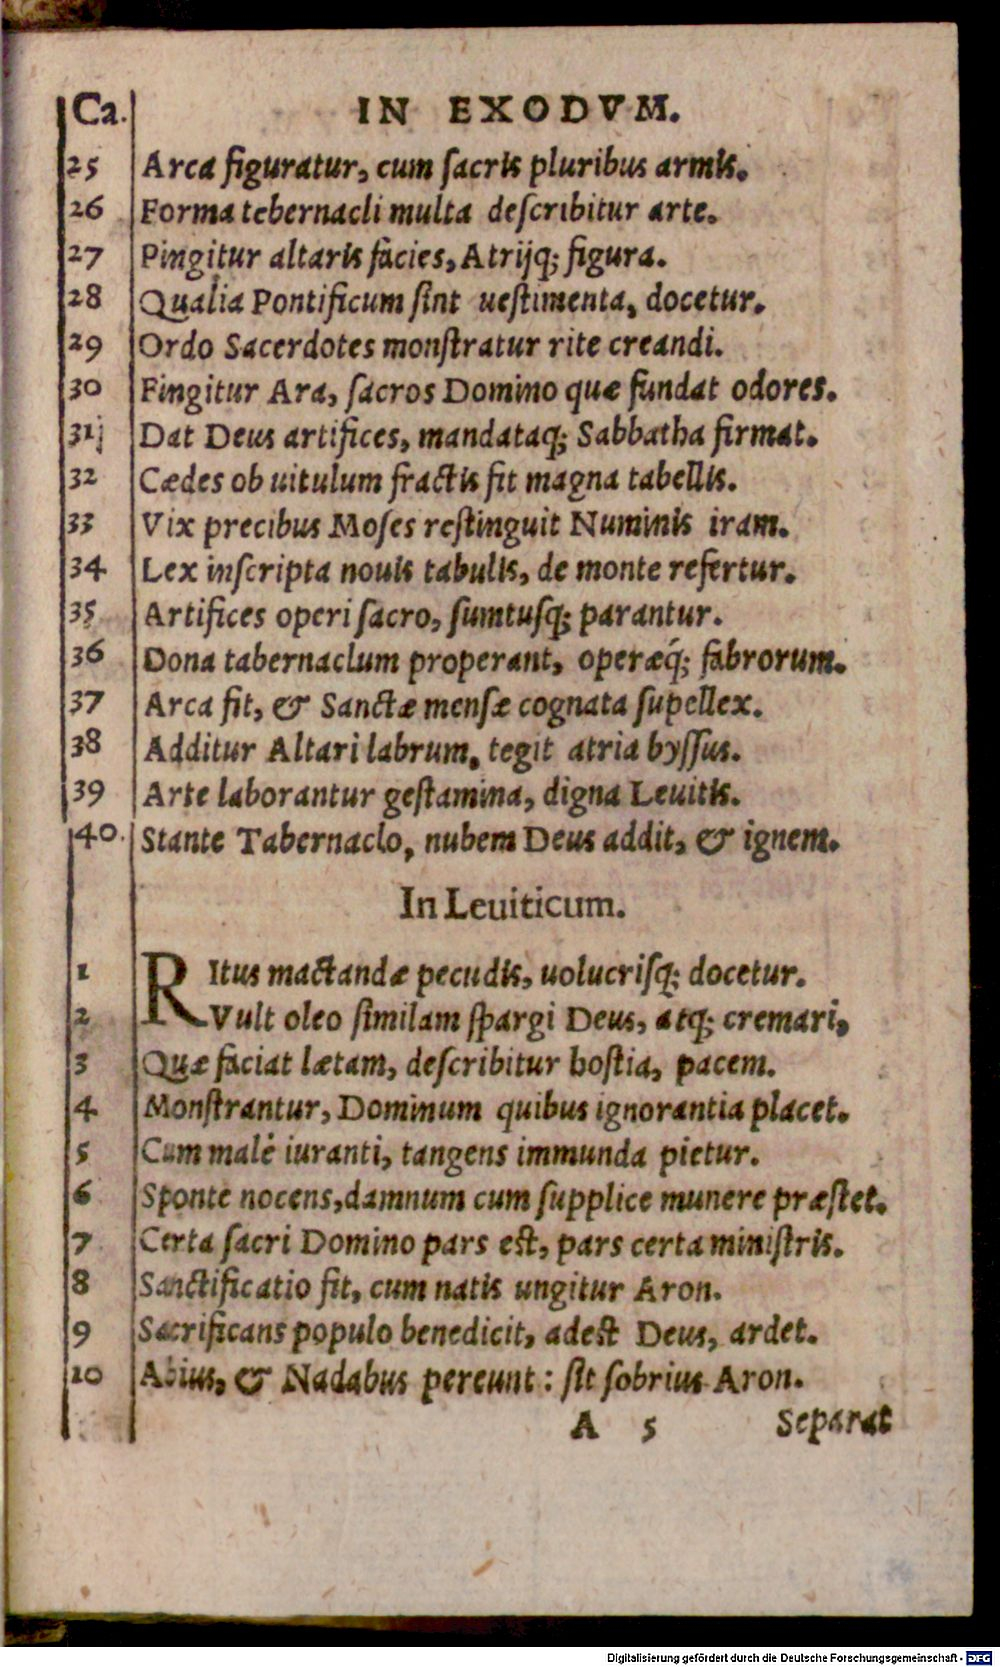 Ca. IN EXODVM.
25 Arca figuratur, cum ſacris pluribus armis.
26 Forma tebernacli multa deſcribitur arte.
27 Pingitur altaris facies, Atrijq; figura.
28 Qualia Pontificum ſint ueſtimenta, docetur.
29 Ordo Sacerdotes monſtratur rite creandi.
30 Fingitur Ara, ſacros Domino quæ fundat odores.
31j Dat Deus artifices, mandataq; Sabbatha firmat.
32 Cædes ob uitulum fractis fit magna tabellis.
33 Vix precibus Moſes reſtinguit Numinis iram.
34 Lex inſcripta nouis tabulis, de monte refertur.
35 Artifices operi ſacro, ſumtuſq; parantur.
36 Dona tabernaclum properant, operæq́; fabrorum.
37 Arca fit, & Sanctæ menſæ cognata ſupellex.
38 Additur Altari labrum, tegit atria byſſus.
39 Arte laborantur geſtamina, digna Leuitis.
40. Stante Tabernaclo, nubem Deus addit, & ignem.
In Leuiticum.
1 RItus mactandæ pecudis, uolucriſq; docetur.
2 Vult oleo ſimilam ſpargi Deus, atq; cremari,
3 Quæ faciat lætam, deſcribitur hoſtia, pacem.
4 Monſtrantur, Dominum quibus ignorantia placet.
5 Cum malè iuranti, tangens immunda pietur.
6 Sponte nocens, damnum cum ſupplice munere præſtet.
7 Certa ſacri Domino pars eſt, pars certa miniſtris.
8 Sanctificatio fit, cum natis ungitur Aron.
9 Sacrificans populo benedicit, adeſt Deus, ardet.
10 Abius, & Nadabus pereunt: ſit ſobrius Aron.
A 5 Separat
Digitalisierung gefördert durch die Deutsche Forschungsgemeinschaft - DFG